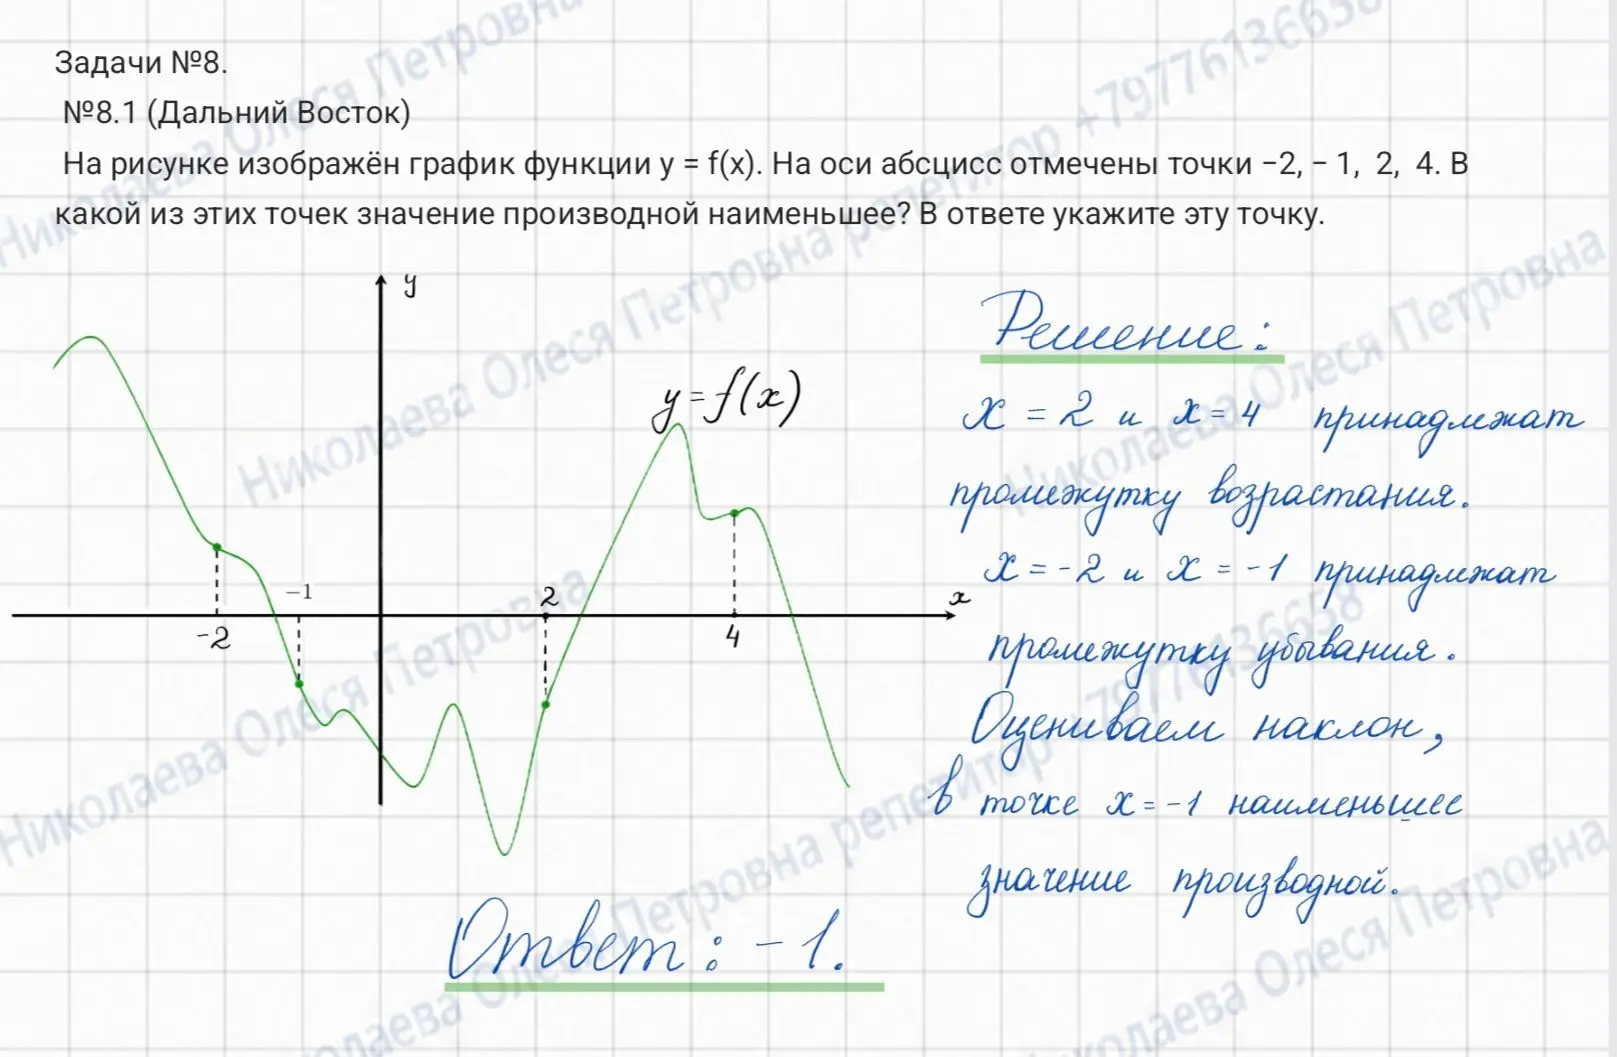 Задачи №8.
№8.1 (Дальний Восток)
На рисунке изображён график функции y = f(x). На оси абсцисс отмечены точки −2, − 1, 2, 4. В
какой из этих точек значение производной наименьшее? В ответе укажите эту точку.
y
y=f(x)
-1
2
x
-2
4
Решение:
x = 2 и x = 4 принадлежат
промежутку возрастания.
x = -2 и x = -1 принадлежат
промежутку убывания.
Оцениваем наклон,
в точке x = -1 наименьшее
значение производной.
Ответ: -1.
Николаева Олеся Петровна репетитор +79776136658
Николаева Олеся Петровна
Николаева Олеся Петровна репетитор +79776136658
Николаева Олеся Петровна